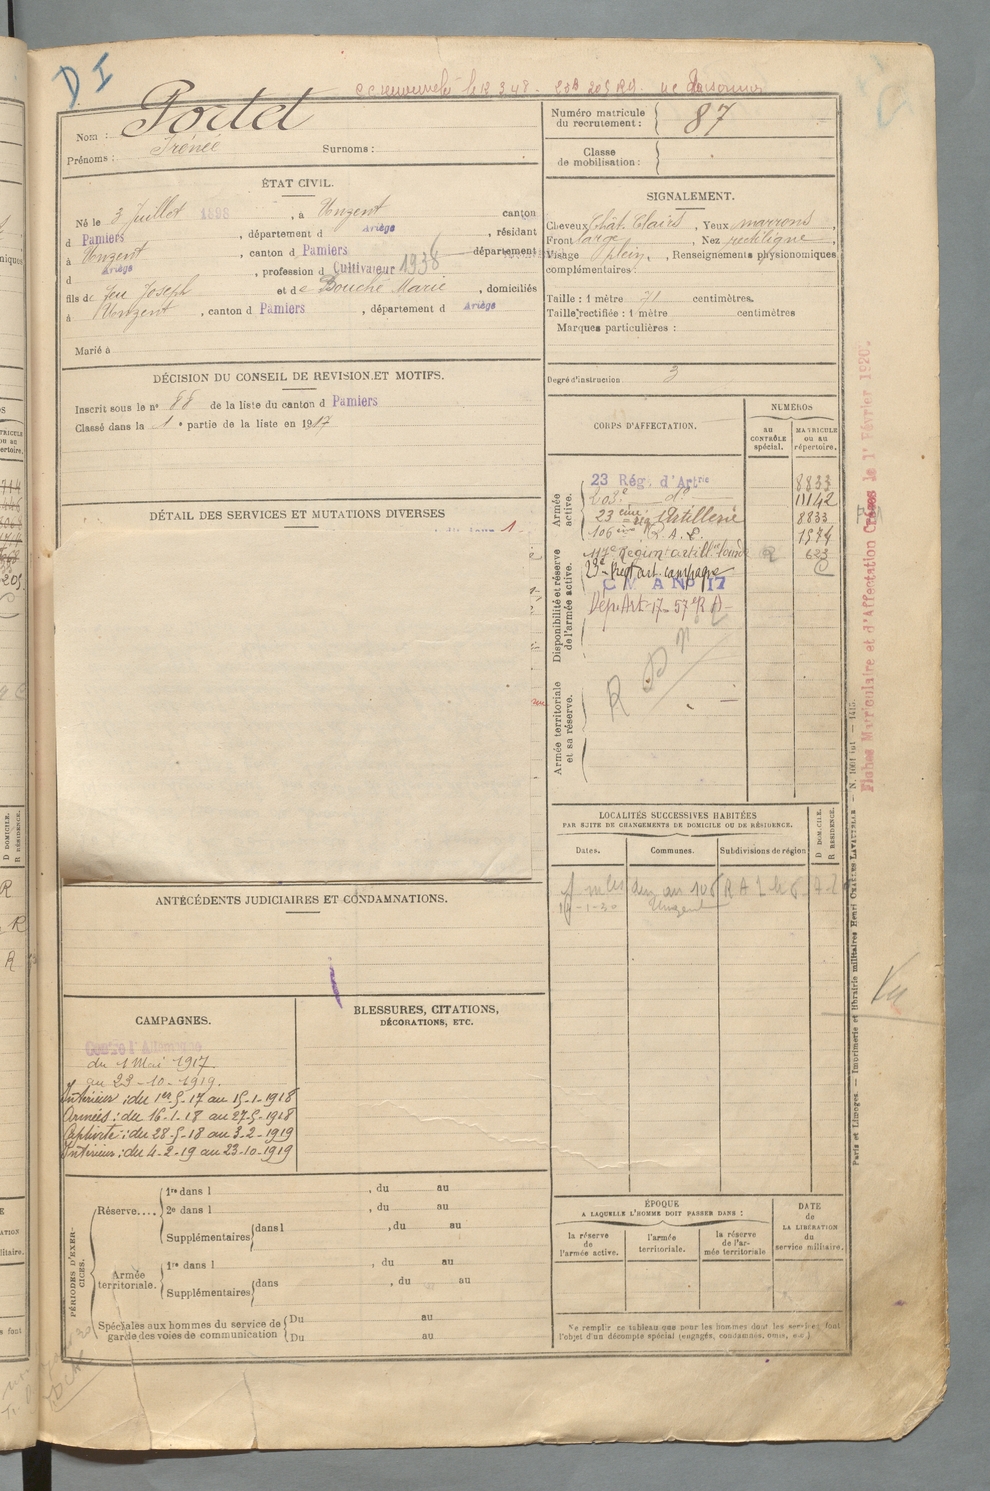 D I
Nom : Portet
Prénoms : Irénée Surnoms :
Numéro matricule
du recrutement : 87
Classe
de mobilisation :
ÉTAT CIVIL.
Né le 3 Juillet 1898, à Unzent canton
d Pamiers, département d Ariège, résidant
à Unzent, canton d Pamiers département
d Ariège, profession d Cultivateur 1938
fils de feu Joseph et de Bouche Marie, domiciliés
à Unzent, canton d Pamiers, département d Ariège
Marié à
SIGNALEMENT.
Cheveux Chât. Clairs, Yeux marrons
Front large, Nez rectiligne,
Visage plein, Renseignements physionomiques
complémentaires :
Taille : 1 mètre 71 centimètres.
Taille rectifiée : 1 mètre centimètres
Marques particulières :
Degré d'instruction 3
DÉCISION DU CONSEIL DE REVISION ET MOTIFS.
Inscrit sous le n° 88 de la liste du canton d Pamiers
Classé dans la 1e partie de la liste en 1917
DÉTAIL DES SERVICES ET MUTATIONS DIVERSES
CORPS D'AFFECTATION.
NUMÉROS
AU CONTRÔLE spécial.
MATRICULE OU AU répertoire.
Armée active.
23 Rég. d'Artrie 8833
203e do 11142
23 eme Artillerie 8833
106 ème R. A. L. 1574
117e Région artillie lourde 623
Disponibilité et réserve de l'armée active.
23e Regt art. campagne
C V A No 17
Dépt Art 17 57e R A
Armée territoriale et sa réserve.
R
Fiches Matriculaire et d'Affectation Crées le 1r Février 1920.
LOCALITÉS SUCCESSIVES HABITÉES
PAR SUITE DE CHANGEMENTS DE DOMICILE OU DE RÉSIDENCE.
Dates. Communes. Subdivisions de région
D DOMICILE.
R RÉSIDENCE.
Unzent
ANTÉCÉDENTS JUDICIAIRES ET CONDAMNATIONS.
CAMPAGNES.
Contre l'Allemagne
du 1 Mai 1917
au 23-10-1919.
Intérieur : du 1er-5-17 au 15-1-1918
Armées : du 16-1-18 au 27-5-1918
Captivité : du 28-5-18 au 3-2-1919
Intérieur : du 4-2-19 au 23-10-1919
BLESSURES, CITATIONS,
DÉCORATIONS, ETC.
PÉRIODES D'EXERCICES.
Réserve.... 1re dans l , du au
2e dans l , du au
Supplémentaires dans l , du au
Armée territoriale. 1re dans l , du au
Supplémentaires dans , du au
Spéciales aux hommes du service de Du au
garde des voies de communication Du au
ÉPOQUE
A LAQUELLE L'HOMME DOIT PASSER DANS :
la réserve de l'armée active.
l'armée territoriale.
la réserve de l'armée territoriale
DATE
de
LA LIBÉRATION
du
service militaire.
Ne remplir ce tableau que pour les hommes dont les services font
l'objet d'un décompte spécial (engagés, condamnés, omis, etc.)
Paris et Limoges. — Imprimerie et librairie militaires Henri CHARLES-LAVAUZELLE
Vu